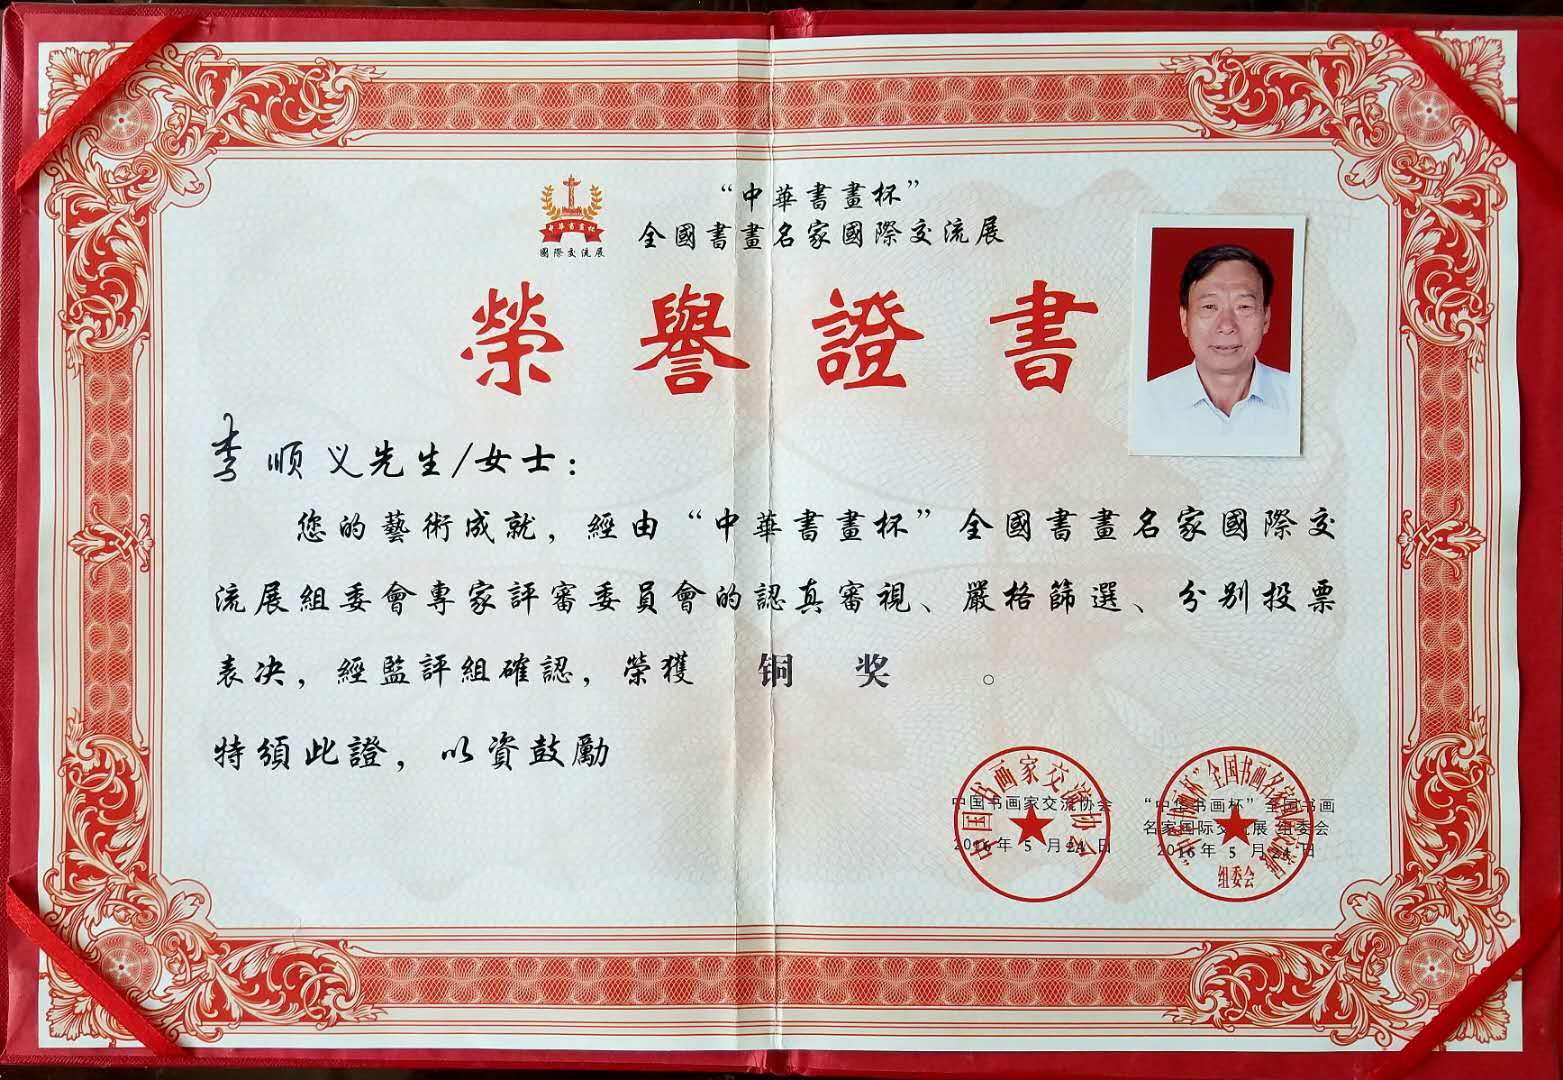 “中華書畫杯”
全國書畫名家國際交流展
中華書畫杯
國際交流展
榮譽證書
李顺义先生/女士：
您的藝術成就，經由“中華書畫杯”全國書畫名家國際交
流展組委會專家評審委員會的認真審視、嚴格篩選、分别投票
表决，經監評組確認，榮獲 铜 奖 。
特頒此證，以資鼓勵
中国书画家交流协会
中国书画家交流协会
2016年 5 月24 日
“中华书画杯”全国书画
名家国际交流展 组委会
2016年 5 月24 日
“中华书画杯”全国书画名家国际交流展
组委会